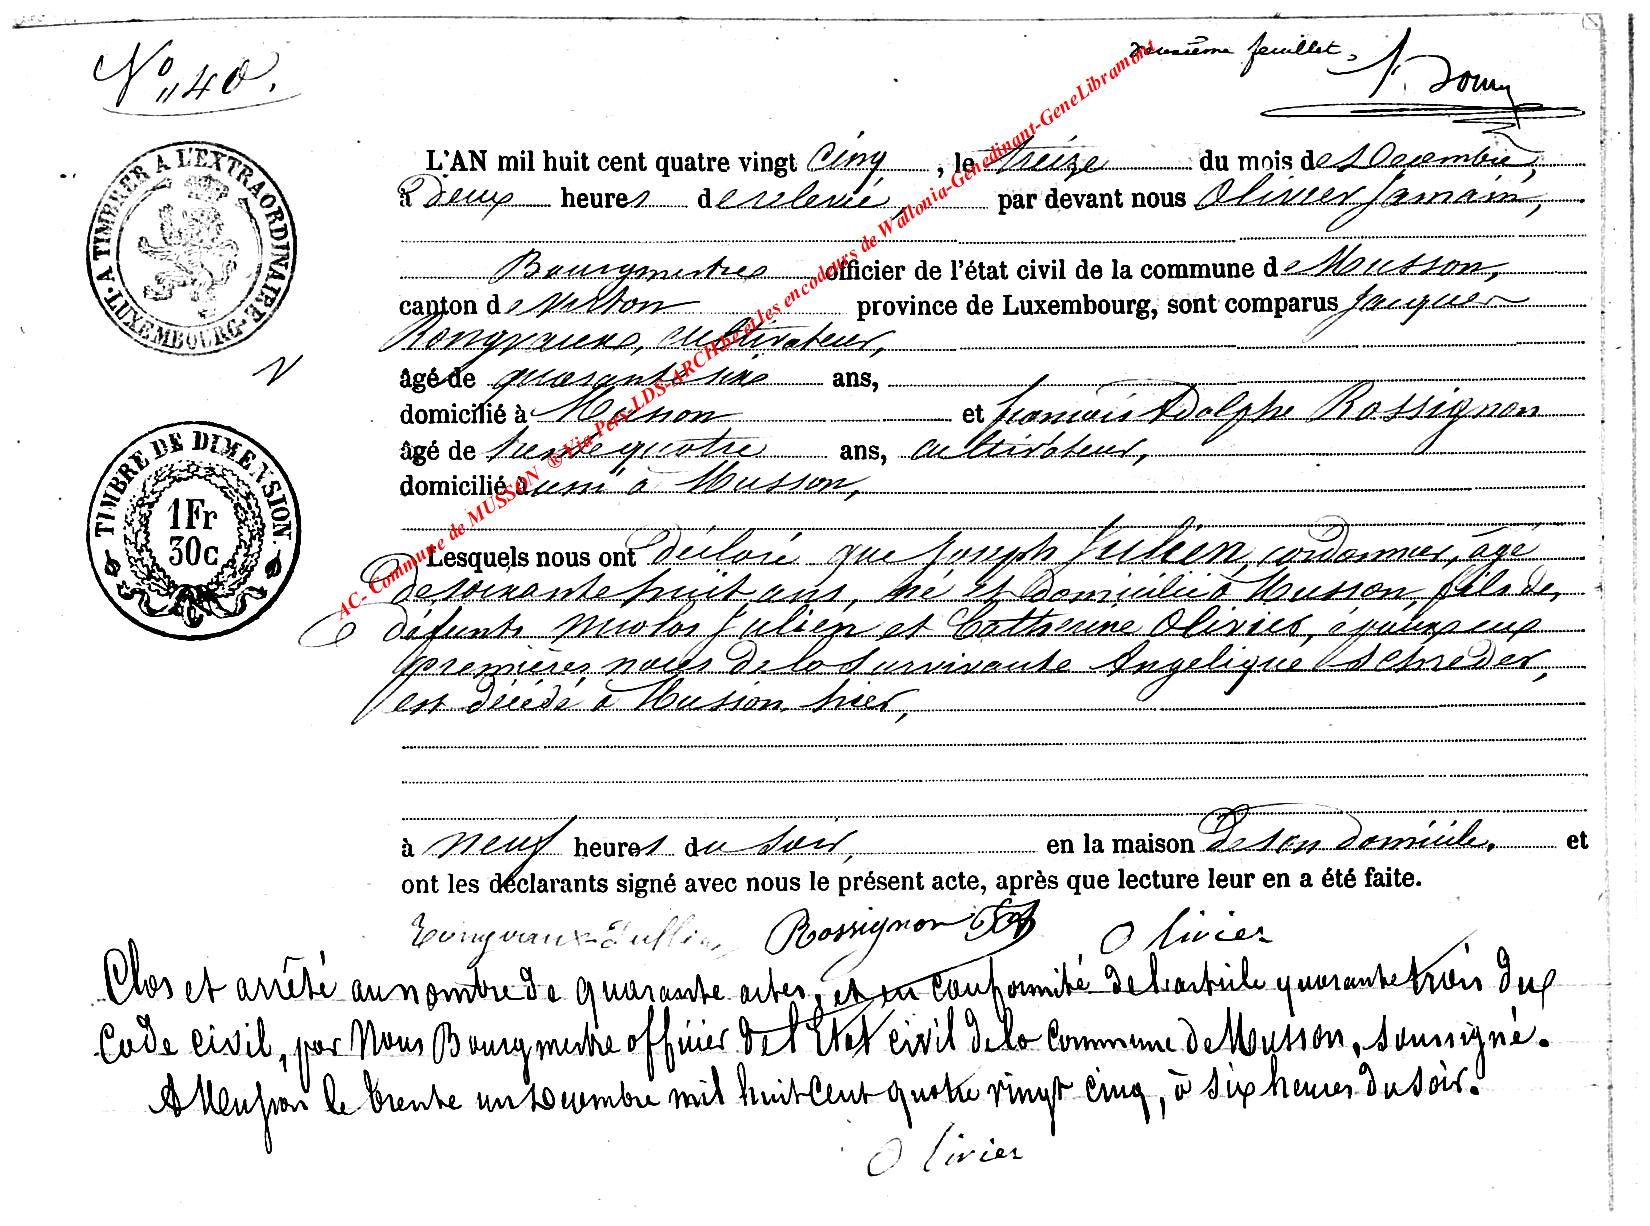 deuxième feuillet.
N° 40.
L'AN mil huit cent quatre vingt cinq, le treize du mois de Décembre,
à deux heures de relevée, par devant nous Olivier Jamain,
Bourgmestre officier de l'état civil de la commune de Musson,
canton de Virton province de Luxembourg, sont comparus Jacques
Rongvaux, cultivateur,
âgé de quarante six ans,
domicilié à Musson et françois Adolphe Rossignon
âgé de trente quatre ans, cultivateur,
domicilié aussi à Musson,
Lesquels nous ont déclaré que Joseph Julien, cordonnier, âgé
de soixante huit ans, né et domicilié à Musson, fils de
défunts Nicolas Julien et Catherine Olivier, époux en
premières noces de la survivante Angélique Schreder,
est décédé à Musson hier,
à neuf heures du soir, en la maison de son domicile. et
ont les déclarants signé avec nous le présent acte, après que lecture leur en a été faite.
Rongvaux-Jullien Rossignon Olivier
Clos et arrêté au nombre de quarante actes, et en conformité de l'article quarante trois du
Code civil, par Nous Bourgmestre officier de l'Etat civil de la Commune de Musson, soussigné.
A Musson le trente un Décembre mil huit Cent quatre vingt cinq, à six heures du soir.
Olivier
A TIMBRER A L'EXTRAORDINAIRE
LUXEMBOURG
TIMBRE DE DIMENSION
1 Fr
30c
AC- Commune de MUSSON ® Via Pers-LDS-ARCH.be et les encodeurs de Wallonia-Genedinant-GeneLibramont